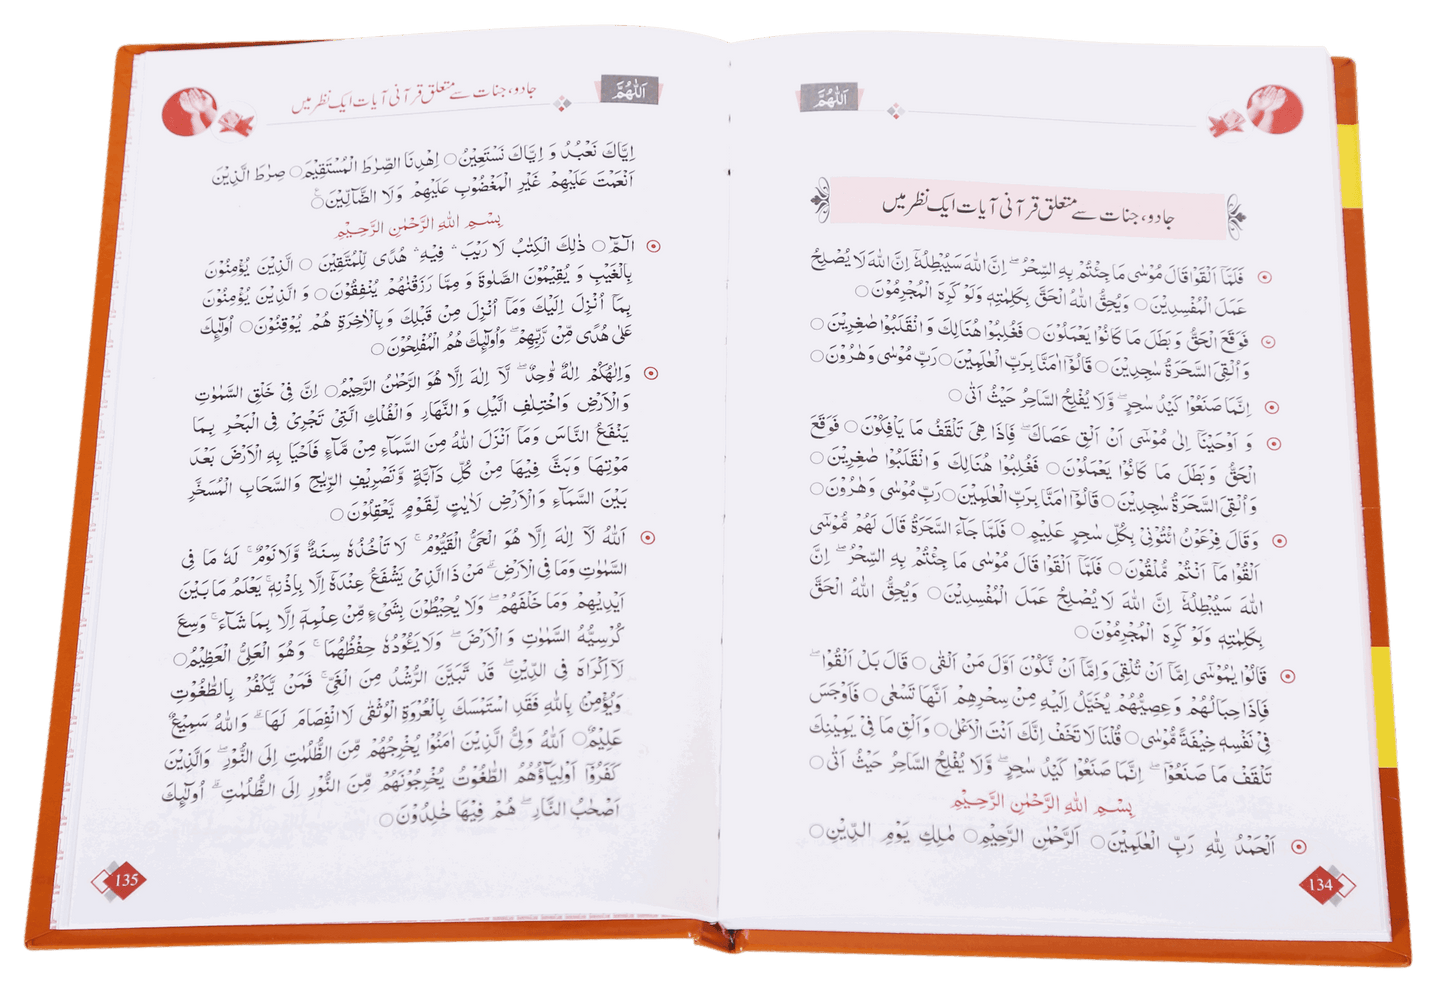 اَللّٰهُمَّ
جادو، جنات سے متعلق قرآنی آیات ایک نظر میں
فَلَمَّاۤ اَلْقَوْا قَالَ مُوْسٰى مَا جِئْتُمْ بِهِ السِّحْرُ ؕ اِنَّ اللّٰهَ سَيُبْطِلُهٗ اِنَّ اللّٰهَ لَا يُصْلِحُ
عَمَلَ الْمُفْسِدِيْنَ ○ وَيُحِقُّ اللّٰهُ الْحَقَّ بِكَلِمٰتِهٖ وَلَوْ كَرِهَ الْمُجْرِمُوْنَ ○
فَوَقَعَ الْحَقُّ وَ بَطَلَ مَا كَانُوْا يَعْمَلُوْنَ ○ فَغُلِبُوْا هُنَالِكَ وَ انْقَلَبُوْا صٰغِرِيْنَ ○
وَ اُلْقِيَ السَّحَرَةُ سٰجِدِيْنَ ○ قَالُوْۤا اٰمَنَّا بِرَبِّ الْعٰلَمِيْنَ ○ رَبِّ مُوْسٰى وَ هٰرُوْنَ ○
اِنَّمَا صَنَعُوْا كَيْدُ سٰحِرٍ ؕ وَّلَا يُفْلِحُ السَّاحِرُ حَيْثُ اَتٰى ○
وَ اَوْحَيْنَاۤ اِلٰى مُوْسٰۤى اَنْ اَلْقِ عَصَاكَ ۚ فَاِذَا هِيَ تَلْقَفُ مَا يَاْفِكُوْنَ ○ فَوَقَعَ
الْحَقُّ وَ بَطَلَ مَا كَانُوْا يَعْمَلُوْنَ ○ فَغُلِبُوْا هُنَالِكَ وَ انْقَلَبُوْا صٰغِرِيْنَ ○
وَ اُلْقِيَ السَّحَرَةُ سٰجِدِيْنَ ○ قَالُوْۤا اٰمَنَّا بِرَبِّ الْعٰلَمِيْنَ ○ رَبِّ مُوْسٰى وَ هٰرُوْنَ ○
وَ قَالَ فِرْعَوْنُ ائْتُوْنِيْ بِكُلِّ سٰحِرٍ عَلِيْمٍ ○ فَلَمَّا جَآءَ السَّحَرَةُ قَالَ لَهُمْ مُّوْسٰۤى
اَلْقُوْا مَاۤ اَنْتُمْ مُّلْقُوْنَ ○ فَلَمَّاۤ اَلْقَوْا قَالَ مُوْسٰى مَا جِئْتُمْ بِهِ السِّحْرُ ؕ اِنَّ
اللّٰهَ سَيُبْطِلُهٗ اِنَّ اللّٰهَ لَا يُصْلِحُ عَمَلَ الْمُفْسِدِيْنَ ○ وَيُحِقُّ اللّٰهُ الْحَقَّ
بِكَلِمٰتِهٖ وَلَوْ كَرِهَ الْمُجْرِمُوْنَ ○
قَالُوْا يٰمُوْسٰۤى اِمَّاۤ اَنْ تُلْقِيَ وَاِمَّاۤ اَنْ نَّكُوْنَ اَوَّلَ مَنْ اَلْقٰى ○ قَالَ بَلْ اَلْقُوْا ۚ
فَاِذَا حِبَالُهُمْ وَعِصِيُّهُمْ يُخَيَّلُ اِلَيْهِ مِنْ سِحْرِهِمْ اَنَّهَا تَسْعٰى ○ فَاَوْجَسَ
فِيْ نَفْسِهٖ خِيْفَةً مُّوْسٰى ○ قُلْنَا لَا تَخَفْ اِنَّكَ اَنْتَ الْاَعْلٰى ○ وَاَلْقِ مَا فِيْ يَمِيْنِكَ
تَلْقَفْ مَا صَنَعُوْا ؕ اِنَّمَا صَنَعُوْا كَيْدُ سٰحِرٍ ؕ وَّلَا يُفْلِحُ السَّاحِرُ حَيْثُ اَتٰى ○
بِسْمِ اللّٰهِ الرَّحْمٰنِ الرَّحِيْمِ
اَلْحَمْدُ لِلّٰهِ رَبِّ الْعٰلَمِيْنَ ○ اَلرَّحْمٰنِ الرَّحِيْمِ ○ مٰلِكِ يَوْمِ الدِّيْنِ ○
134
اَللّٰهُمَّ
جادو، جنات سے متعلق قرآنی آیات ایک نظر میں
اِيَّاكَ نَعْبُدُ وَ اِيَّاكَ نَسْتَعِيْنُ ○ اِهْدِنَا الصِّرٰطَ الْمُسْتَقِيْمَ ○ صِرٰطَ الَّذِيْنَ
اَنْعَمْتَ عَلَيْهِمْ غَيْرِ الْمَغْضُوْبِ عَلَيْهِمْ وَلَا الضَّآلِّيْنَ ○
بِسْمِ اللّٰهِ الرَّحْمٰنِ الرَّحِيْمِ
الٓمّٓ ○ ذٰلِكَ الْكِتٰبُ لَا رَيْبَ ۛ فِيْهِ ۛ هُدًى لِّلْمُتَّقِيْنَ ○ الَّذِيْنَ يُؤْمِنُوْنَ
بِالْغَيْبِ وَ يُقِيْمُوْنَ الصَّلٰوةَ وَ مِمَّا رَزَقْنٰهُمْ يُنْفِقُوْنَ ○ وَ الَّذِيْنَ يُؤْمِنُوْنَ
بِمَاۤ اُنْزِلَ اِلَيْكَ وَمَاۤ اُنْزِلَ مِنْ قَبْلِكَ وَ بِالْاٰخِرَةِ هُمْ يُوْقِنُوْنَ ○ اُولٰٓئِكَ
عَلٰى هُدًى مِّنْ رَّبِّهِمْ ۗ وَ اُولٰٓئِكَ هُمُ الْمُفْلِحُوْنَ ○
وَ اِلٰهُكُمْ اِلٰهٌ وَّاحِدٌ ۚ لَاۤ اِلٰهَ اِلَّا هُوَ الرَّحْمٰنُ الرَّحِيْمُ ○ اِنَّ فِيْ خَلْقِ السَّمٰوٰتِ
وَ الْاَرْضِ وَ اخْتِلٰفِ الَّيْلِ وَ النَّهَارِ وَ الْفُلْكِ الَّتِيْ تَجْرِيْ فِي الْبَحْرِ بِمَا
يَنْفَعُ النَّاسَ وَ مَاۤ اَنْزَلَ اللّٰهُ مِنَ السَّمَآءِ مِنْ مَّآءٍ فَاَحْيَا بِهِ الْاَرْضَ بَعْدَ
مَوْتِهَا وَ بَثَّ فِيْهَا مِنْ كُلِّ دَآبَّةٍ وَّ تَصْرِيْفِ الرِّيٰحِ وَ السَّحَابِ الْمُسَخَّرِ
بَيْنَ السَّمَآءِ وَ الْاَرْضِ لَاٰيٰتٍ لِّقَوْمٍ يَّعْقِلُوْنَ ○
اَللّٰهُ لَاۤ اِلٰهَ اِلَّا هُوَ الْحَيُّ الْقَيُّوْمُ ۚ لَا تَاْخُذُهٗ سِنَةٌ وَّلَا نَوْمٌ ؕ لَهٗ مَا فِي
السَّمٰوٰتِ وَمَا فِي الْاَرْضِ ؕ مَنْ ذَا الَّذِيْ يَشْفَعُ عِنْدَهٗۤ اِلَّا بِاِذْنِهٖ ؕ يَعْلَمُ مَا بَيْنَ
اَيْدِيْهِمْ وَمَا خَلْفَهُمْ ۚ وَلَا يُحِيْطُوْنَ بِشَيْءٍ مِّنْ عِلْمِهٖۤ اِلَّا بِمَا شَآءَ ۚ وَسِعَ
كُرْسِيُّهُ السَّمٰوٰتِ وَ الْاَرْضَ ۚ وَلَا يَـُٔوْدُهٗ حِفْظُهُمَا ۚ وَهُوَ الْعَلِيُّ الْعَظِيْمُ ○
لَاۤ اِكْرَاهَ فِي الدِّيْنِ ۙ قَدْ تَّبَيَّنَ الرُّشْدُ مِنَ الْغَيِّ ۚ فَمَنْ يَّكْفُرْ بِالطَّاغُوْتِ
وَيُؤْمِنْۢ بِاللّٰهِ فَقَدِ اسْتَمْسَكَ بِالْعُرْوَةِ الْوُثْقٰى لَا انْفِصَامَ لَهَا ؕ وَاللّٰهُ سَمِيْعٌ
عَلِيْمٌ ○ اَللّٰهُ وَلِيُّ الَّذِيْنَ اٰمَنُوْا يُخْرِجُهُمْ مِّنَ الظُّلُمٰتِ اِلَى النُّوْرِ ؕ وَالَّذِيْنَ
كَفَرُوْۤا اَوْلِيٰٓـُٔهُمُ الطَّاغُوْتُ يُخْرِجُوْنَهُمْ مِّنَ النُّوْرِ اِلَى الظُّلُمٰتِ ؕ اُولٰٓئِكَ
اَصْحٰبُ النَّارِ ۚ هُمْ فِيْهَا خٰلِدُوْنَ ○
135